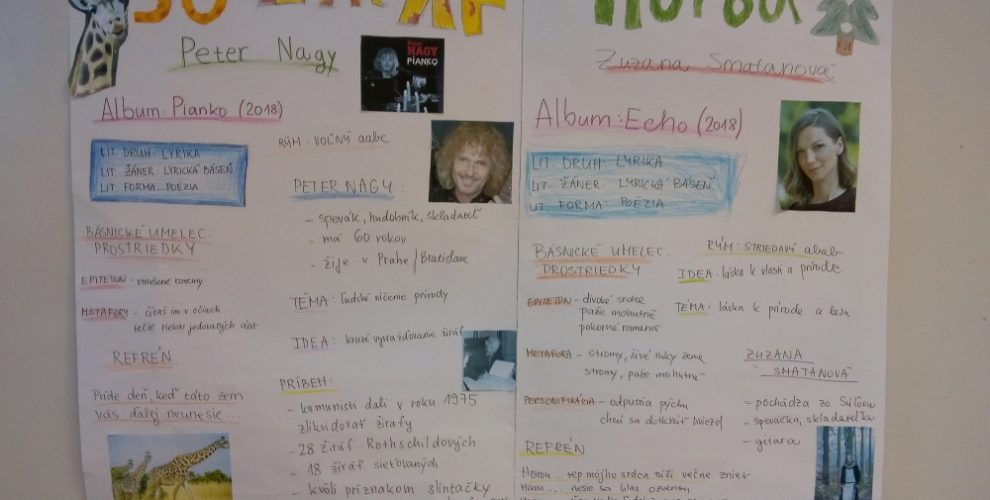 Peter Nagy
Peter
NAGY
PIANKO
Album: Pianko (2018)
LIT. DRUH: LYRIKA
LIT. ŽÁNER: LYRICKÁ BÁSEŇ
LIT. FORMA: POÉZIA
BÁSNICKÉ UMELEC.
PROSTRIEDKY
EPITETON - vznešené tvory
METAFORY - čítaš im v očiach
tečie riekou jedovatých
REFRÉN
Príde deň, keď táto zem
vás ďalej neunesie...
RÝM: VOĽNÝ aabc
PETER NAGY:
- spevák, hudobník, skladateľ
- má 60 rokov
- žije v Prahe/Bratislave
TÉMA: ľudské ničenie prírody
IDEA: kruté vyvražďovanie žiráf
PRÍBEH:
- komunisti dali v roku 1975
zlikvidovať žirafy
- 28 žiráf Rothschildových
- 18 žiráf sieťovaných
- kvôli príznakom slintačky
Horou
Zuzana Smatanová
Album: Echo (2018)
LIT. DRUH: LYRIKA
LIT. ŽÁNER: LYRICKÁ BÁSEŇ
LIT. FORMA: POÉZIA
BÁSNICKÉ UMELEC.
PROSTRIEDKY
EPITETON - divoké srdce
paže mohutné
pokorné ramená
METAFORA - stromy, živé ruky zeme
stromy, paže mohutné
PERSONIFIKÁCIA - odpúšťa pýchu
chcú sa dotknúť hviezd
REFRÉN
Horou... tep môjho srdca túži večne znieť
Horou... nesie sa hlas ozvenou
RÝM: STRIEDAVÝ abab
IDEA: láska k vlasti a prírode
TÉMA: láska k prírode a lesu
ZUZANA
SMATANOVÁ
- pochádza zo Súľova
- speváčka, skladateľka
- gitara